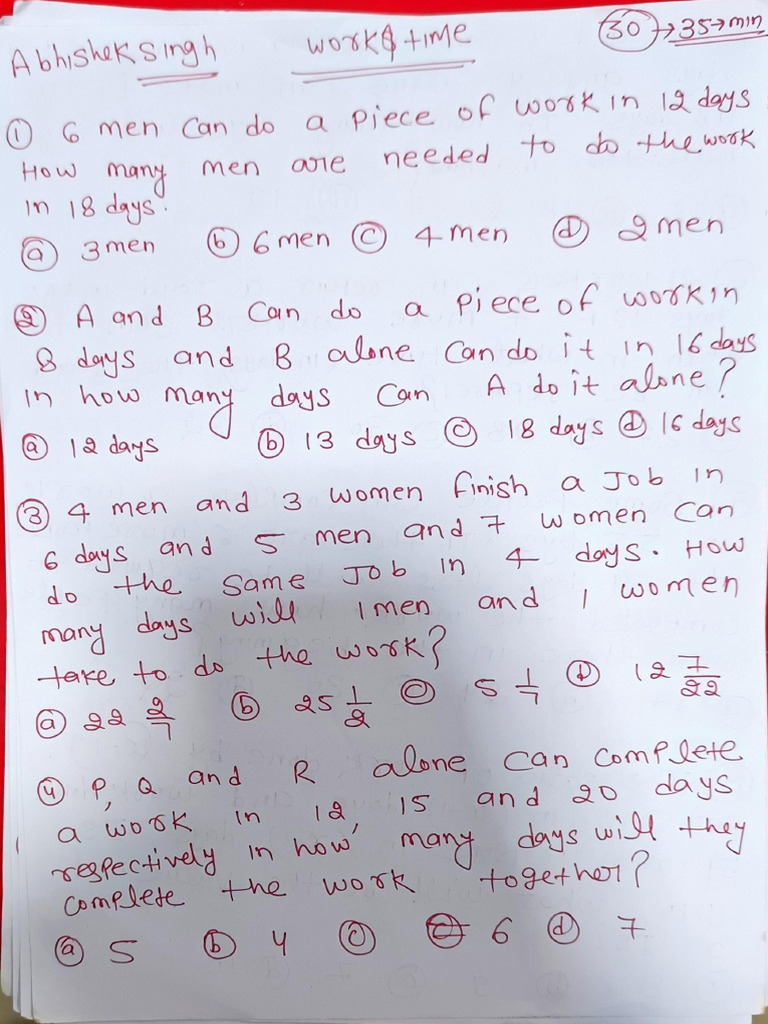 Abhishek Singh work & time 30 → 35 → min
① 6 men can do a piece of work in 12 days
How many men are needed to do the work
in 18 days.
ⓐ 3 men ⓑ 6 men ⓒ 4 men ⓓ 2 men
② A and B can do a piece of work in
8 days and B alone can do it in 16 days
in how many days can A do it alone?
ⓐ 12 days ⓑ 13 days ⓒ 18 days ⓓ 16 days
③ 4 men and 3 women finish a Job in
6 days and 5 men and 7 women can
do the same Job in 4 days. How
many days will 1 men and 1 women
take to do the work?
ⓐ 22 2/7 ⓑ 25 1/2 ⓒ 5 1/7 ⓓ 12 7/22
④ P, Q and R alone can complete
a work in 12, 15 and 20 days
respectively in how many days will they
complete the work together?
ⓐ 5 ⓑ 4 ⓒ 6 ⓓ 7